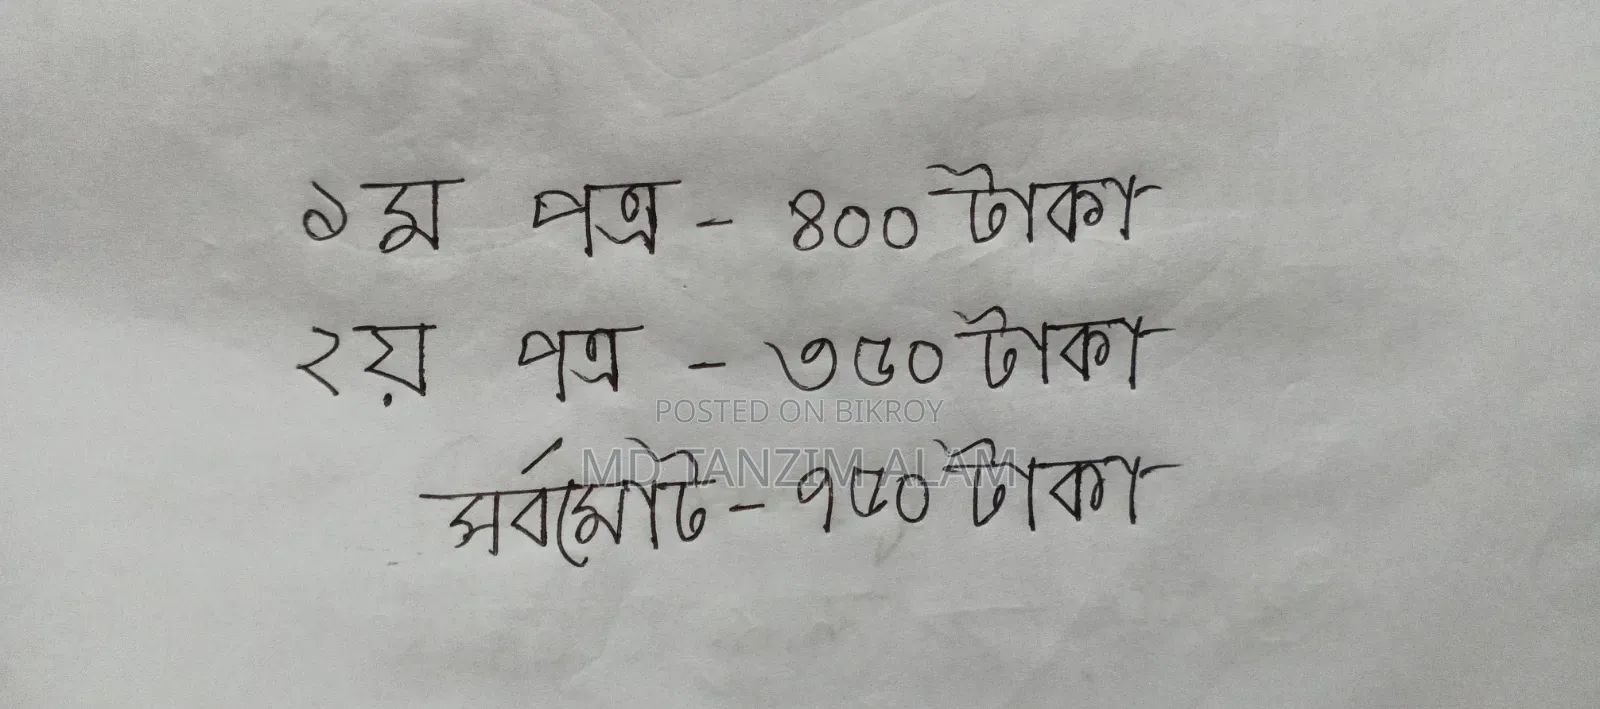 ১ম পত্র - ৪০০ টাকা
২য় পত্র - ৩৫০ টাকা
POSTED ON BIKROY
MD TANZIM ALAM
সর্বমোট - ৭৫০ টাকা